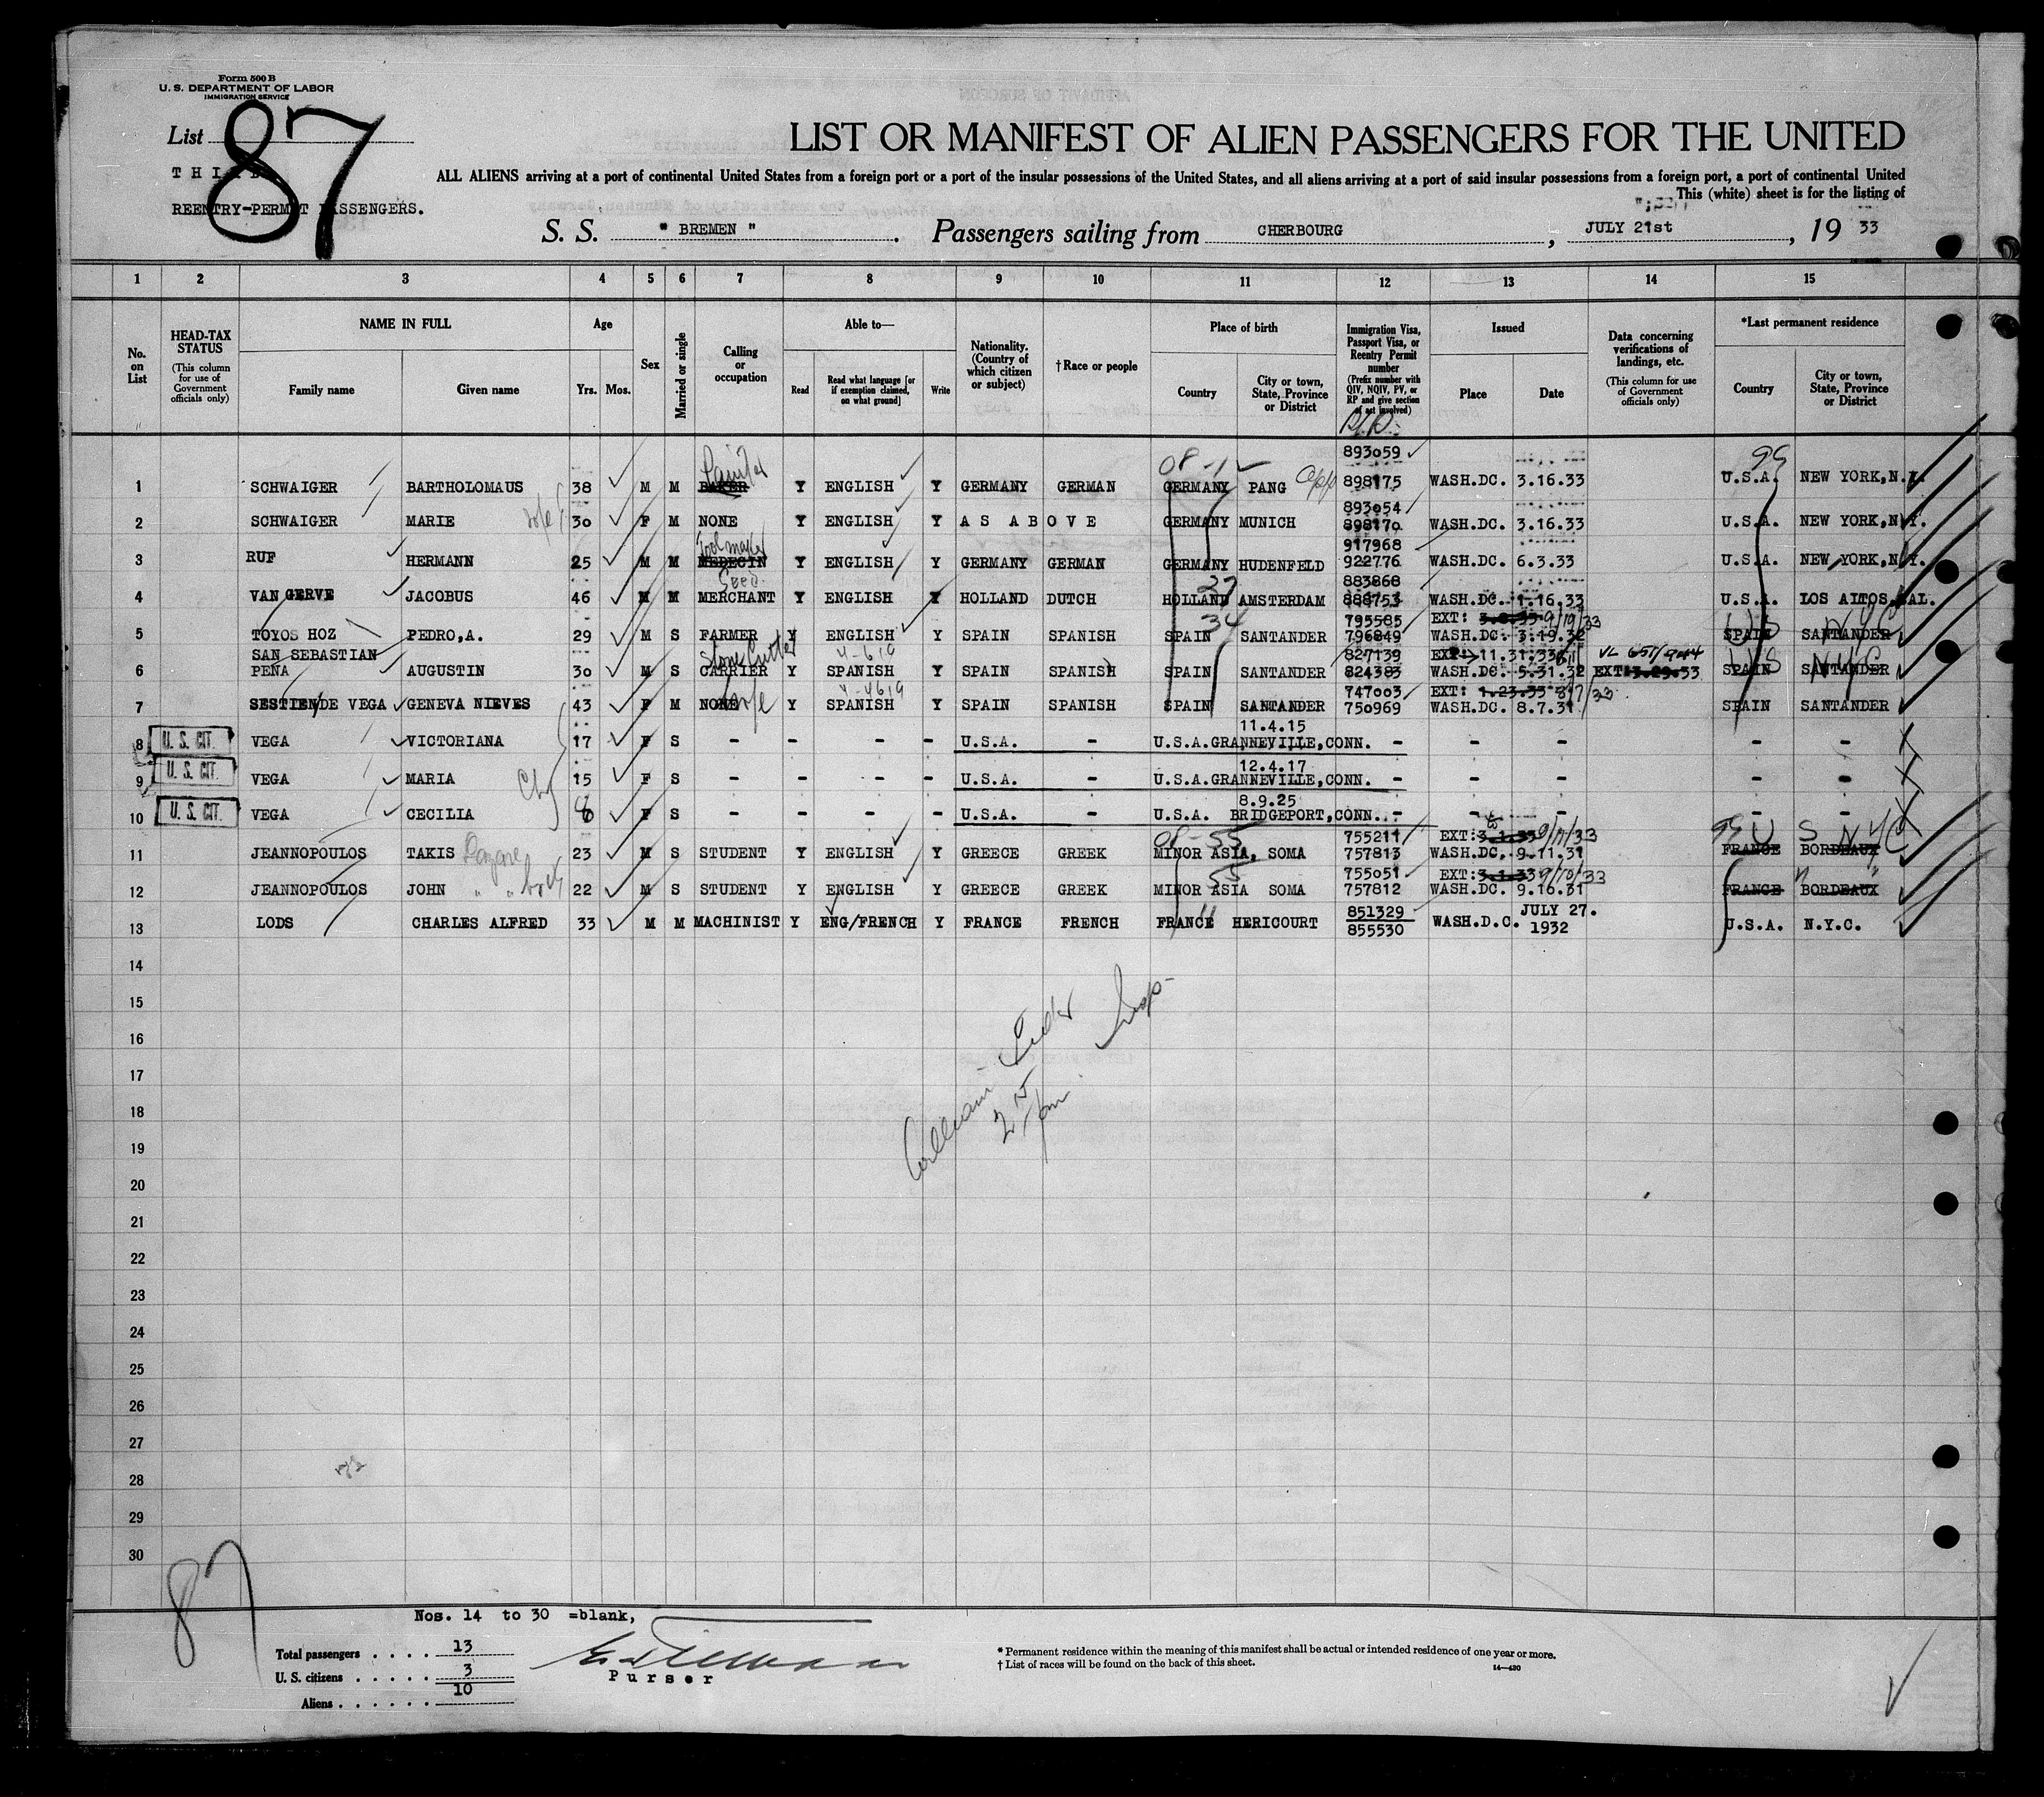 Form 500 B
U. S. DEPARTMENT OF LABOR
IMMIGRATION SERVICE
List 87
REENTRY-PERMIT PASSENGERS.
LIST OR MANIFEST OF ALIEN PASSENGERS FOR THE UNITED
ALL ALIENS arriving at a port of continental United States from a foreign port or a port of the insular possessions of the United States, and all aliens arriving at a port of said insular possessions from a foreign port, a port of continental United
This (white) sheet is for the listing of
S. S. " BREMEN " . Passengers sailing from CHERBOURG , JULY 21st , 19 33
1 2 3 4 5 6 7 8 9 10 11 12 13 14 15
No. on List
HEAD-TAX STATUS
(This column for use of Government officials only)
NAME IN FULL
Family name
Given name
Age
Yrs. Mos.
Sex
Married or single
Calling or occupation
Able to—
Read
Read what language [or if exemption claimed, on what ground]
Write
Nationality. (Country of which citizen or subject)
† Race or people
Place of birth
Country
City or town, State, Province or District
Immigration Visa, Passport Visa, or Reentry Permit number
(Prefix number with QIV, NQIV, PV, or RP and give section of act involved)
Issued
Place
Date
Data concerning verifications of landings, etc.
(This column for use of Government officials only)
*Last permanent residence
Country
City or town, State, Province or District
Painter 08-1 893059 99
1 SCHWAIGER BARTHOLOMAUS 38 M M BAKER Y ENGLISH Y GERMANY GERMAN GERMANY PANG 898175 WASH.DC. 3.16.33 U.S.A. NEW YORK,N.Y.
893054
2 SCHWAIGER MARIE wife 30 F M NONE Y ENGLISH Y AS ABOVE GERMANY MUNICH 898170 WASH.DC. 3.16.33 U.S.A. NEW YORK,N.Y.
Tool maker 917968
3 RUF HERMANN 25 M M MEDECIN Y ENGLISH Y GERMANY GERMAN GERMANY HUDENFELD 922776 WASH.DC. 6.3.33 U.S.A. NEW YORK,N.Y.
Seed 27 883868
4 VAN GERVE JACOBUS 46 M M MERCHANT Y ENGLISH Y HOLLAND DUTCH HOLLAND AMSTERDAM 888753 WASH.DC. 1.16.33 U.S.A. LOS ALTOS,CAL.
34 795585 EXT: 9/19/33 US NYC
5 TOYOS HOZ PEDRO,A. 29 M S FARMER Y ENGLISH Y SPAIN SPANISH SPAIN SANTANDER 796849 WASH.DC. 3.19.32 SPAIN SANTANDER
SAN SEBASTIAN Stone Cutter 827139 EXP: 11.31.33 US NYC
6 PEÑA AUGUSTIN 30 M S CARRIER Y SPANISH Y SPAIN SPANISH SPAIN SANTANDER 824383 WASH.DC. 5.31.32 EXT: 3.29.33 SPAIN SANTANDER
747003 EXT: 1.23.33 8/7/33
7 SESTIENDE VEGA GENEVA NIEVES 43 F M NONE wife Y SPANISH Y SPAIN SPANISH SPAIN SANTANDER 750969 WASH.DC. 8.7.31 SPAIN SANTANDER
11.4.15
8 U. S. CIT. VEGA VICTORIANA 17 F S - - - - U.S.A. - U.S.A. GRANNEVILLE,CONN. - - - - -
12.4.17
9 U. S. CIT. VEGA MARIA 15 F S - - - - U.S.A. - U.S.A. GRANNEVILLE,CONN. - - - - -
8.9.25
10 U. S. CIT. VEGA CECILIA 8 F S - - - - U.S.A. - U.S.A. BRIDGEPORT,CONN. - - - - -
08-55 755211 EXT: 3.1.33 9/11/33 99 U S NYC
11 JEANNOPOULOS TAKIS 23 M S STUDENT Y ENGLISH Y GREECE GREEK MINOR ASIA, SOMA 757813 WASH.DC. 9.11.31 FRANCE BORDEAUX
55 755051 EXT: 3.1.33 9/10/33
12 JEANNOPOULOS JOHN " " 22 M S STUDENT Y ENGLISH Y GREECE GREEK MINOR ASIA SOMA 757812 WASH.DC. 9.16.31 FRANCE BORDEAUX
11 851329 JULY 27.
13 LODS CHARLES ALFRED 33 M M MACHINIST Y ENG/FRENCH Y FRANCE FRENCH FRANCE HERICOURT 855530 WASH.D.C. 1932 U.S.A. N.Y.C.
14
15
16
17
18
19
20
21
22
23
24
25
26
27
28
29
30
87
Nos. 14 to 30 =blank,
Total passengers . . . . 13
U. S. citizens . . . . . 3
Aliens . . . . . . 10
Purser
* Permanent residence within the meaning of this manifest shall be actual or intended residence of one year or more.
† List of races will be found on the back of this sheet.
14—430